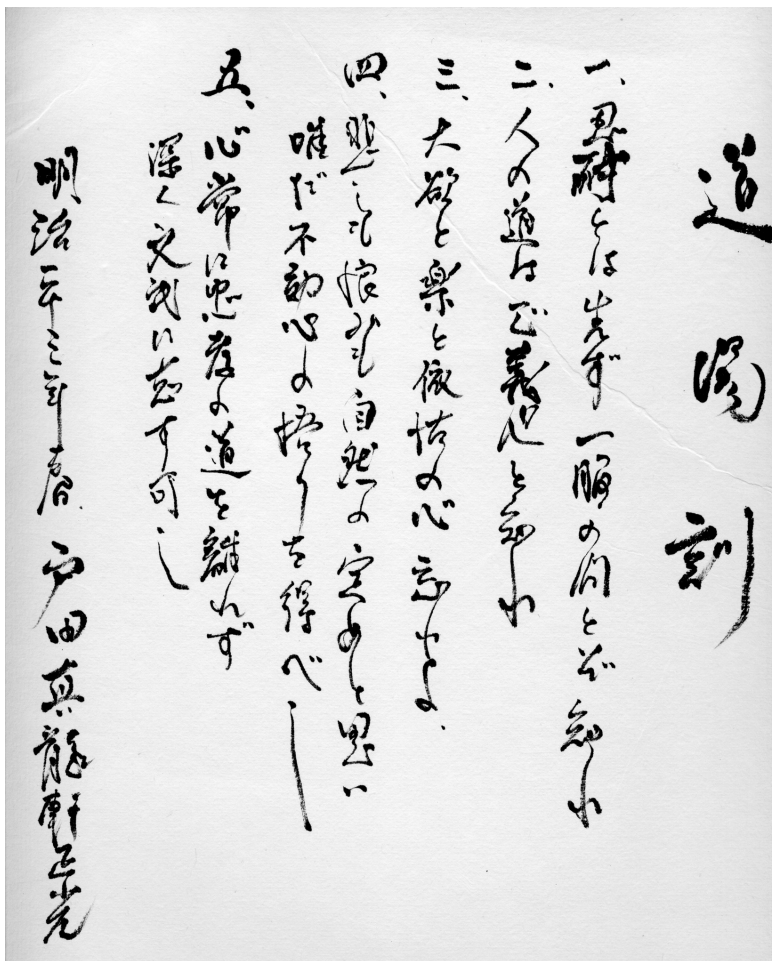 道場訓
一、忍耐とは先ず一服の間とぞ知れ
二、人の道は正義也と知れ
三、大欲と楽と依怙の心忘れよ、
四、悲しみも恨みも自然の定めと思い
唯だ不動心の悟りを得べし
五、心常に忠孝の道を離れず
深く文武に志す可し
明治二十三年春、戸田真龍軒正光